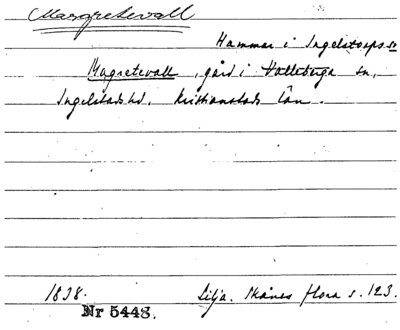 Margretevall
Hammar i Ingelstorps sn
Magretevall, gård i Valleberga sn,
Ingelstads hd, Kristianstads län.
1838. Lilja. Skånes flora s. 123.
Nr 5448.